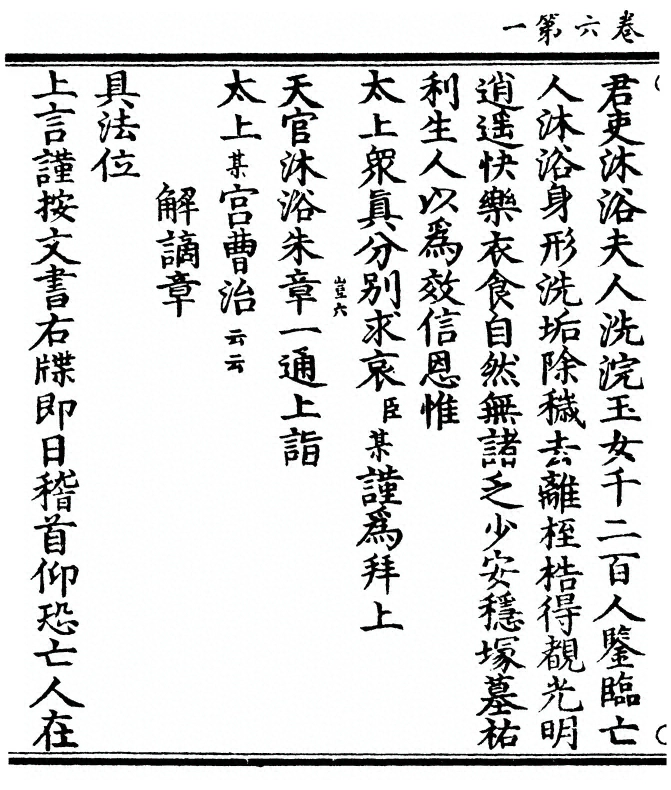 一第六卷
君吏沐浴夫人洗浣玉女千二百人鑒臨亡
人沐浴身形洗垢除穢去離桎梏得覩光明
逍遥快樂衣食自然無諸乏少安穩塚墓祐
利生人以爲效信恩惟
太上衆眞分别求哀臣某謹爲拜上
天官沐浴朱章一通上詣
豈六
太上某宫曹治云云
解謫章
具法位
上言謹按文書右牒即日稽首仰恐亡人在